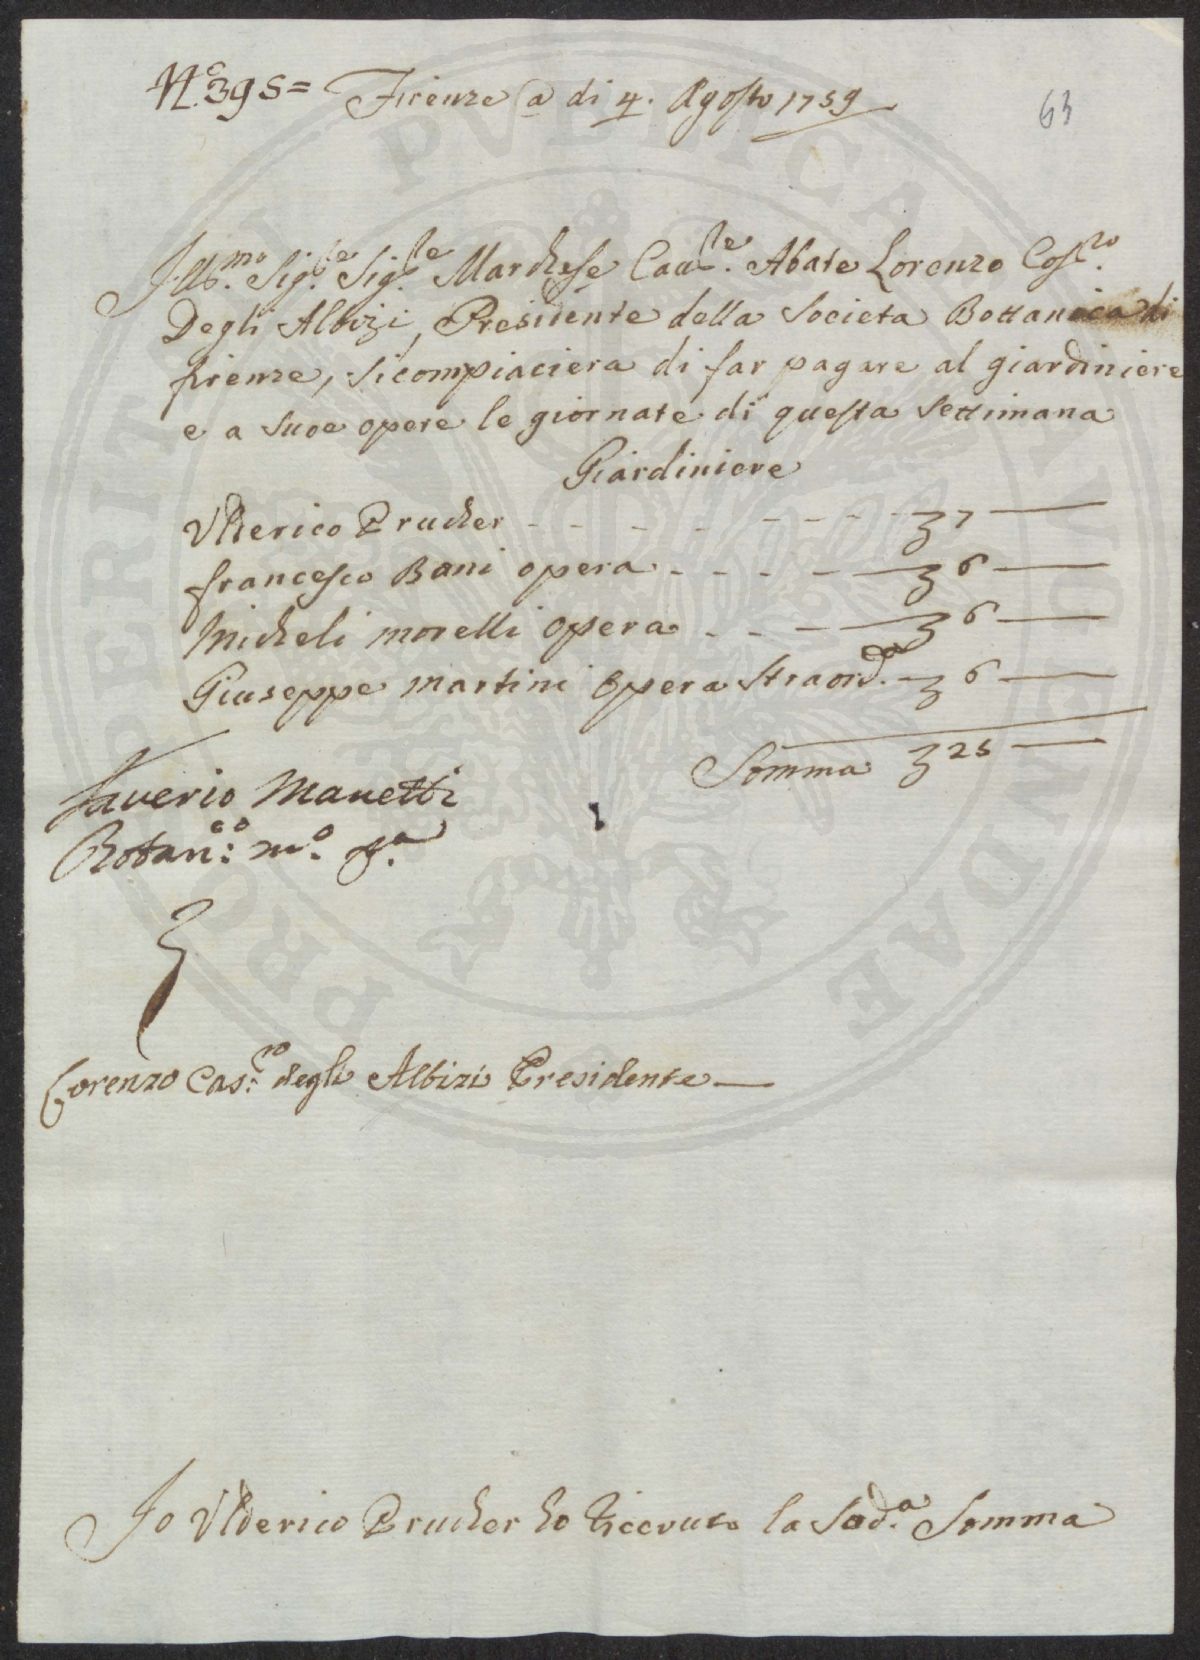 N.º 395= Firenze a di 4. Agosto 1759
63
Ill.mo Sig.re Sig.re Marchese Cau.re Abate Lorenzo Cos.ro
Degli Albizi, Presidente della Societa Bottanica di
firenze, si compiaciera di far pagare al giardiniere
e a suoe opere le giornate di questa Settimana
Giardiniere
Ulderico Prucher - - - - - - - - £ 7 —
francesco Bani opera - - - - £ 6 —
Micheli morelli opera - - - £ 6 —
Giuseppe martini opera Straord.a - £ 6 —
Somma £ 25 —
Saverio Manetti
Botan.co m.o p.a
Lorenzo Cas.ro degli Albizi Presidente —
Io Ulderico Prucher ho riceuuto la Sud.a Somma
PVBLICAE VTILITATI PROPERITATI PROVIDENDAE